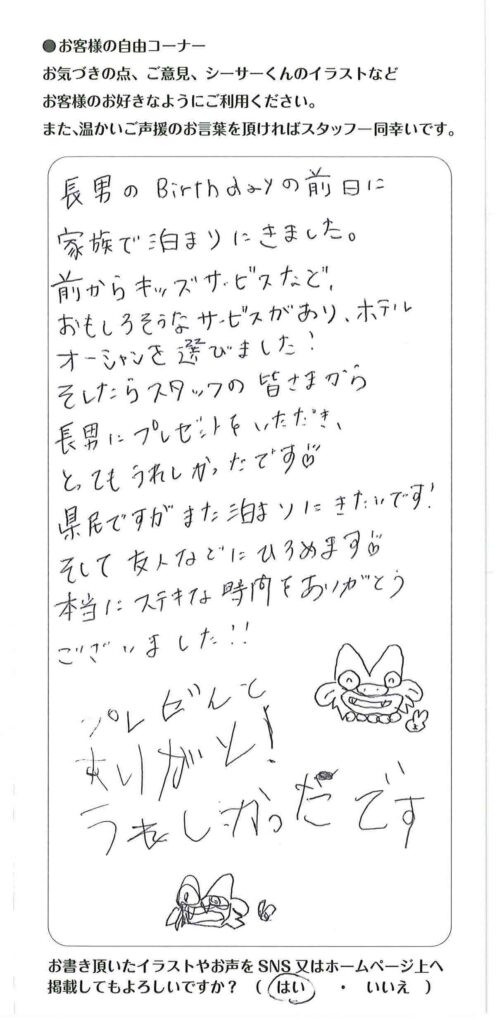 ●お客様の自由コーナー
お気づきの点、ご意見、シーサーくんのイラストなど
お客様のお好きなようにご利用ください。
また、温かいご声援のお言葉を頂ければスタッフ一同幸いです。
長男の Birthdayの前日に
家族で泊まりにきました。
前からキッズサービスなど、
おもしろそうなサービスがあり、ホテル
オーシャンを選びました!
そしたらスタッフの皆さまから
長男にプレゼントをいただき、
とってもうれしかったです
県民ですがまた泊まりにきたいです!
そして友人などにひろめます
本当にステキな時間をありがとう
ございました!!
プレぜんと
ありがと!
うれしかっだです
お書き頂いたイラストやお声をSNS又はホームページ上へ
掲載してもよろしいですか? ( はい ・ いいえ )